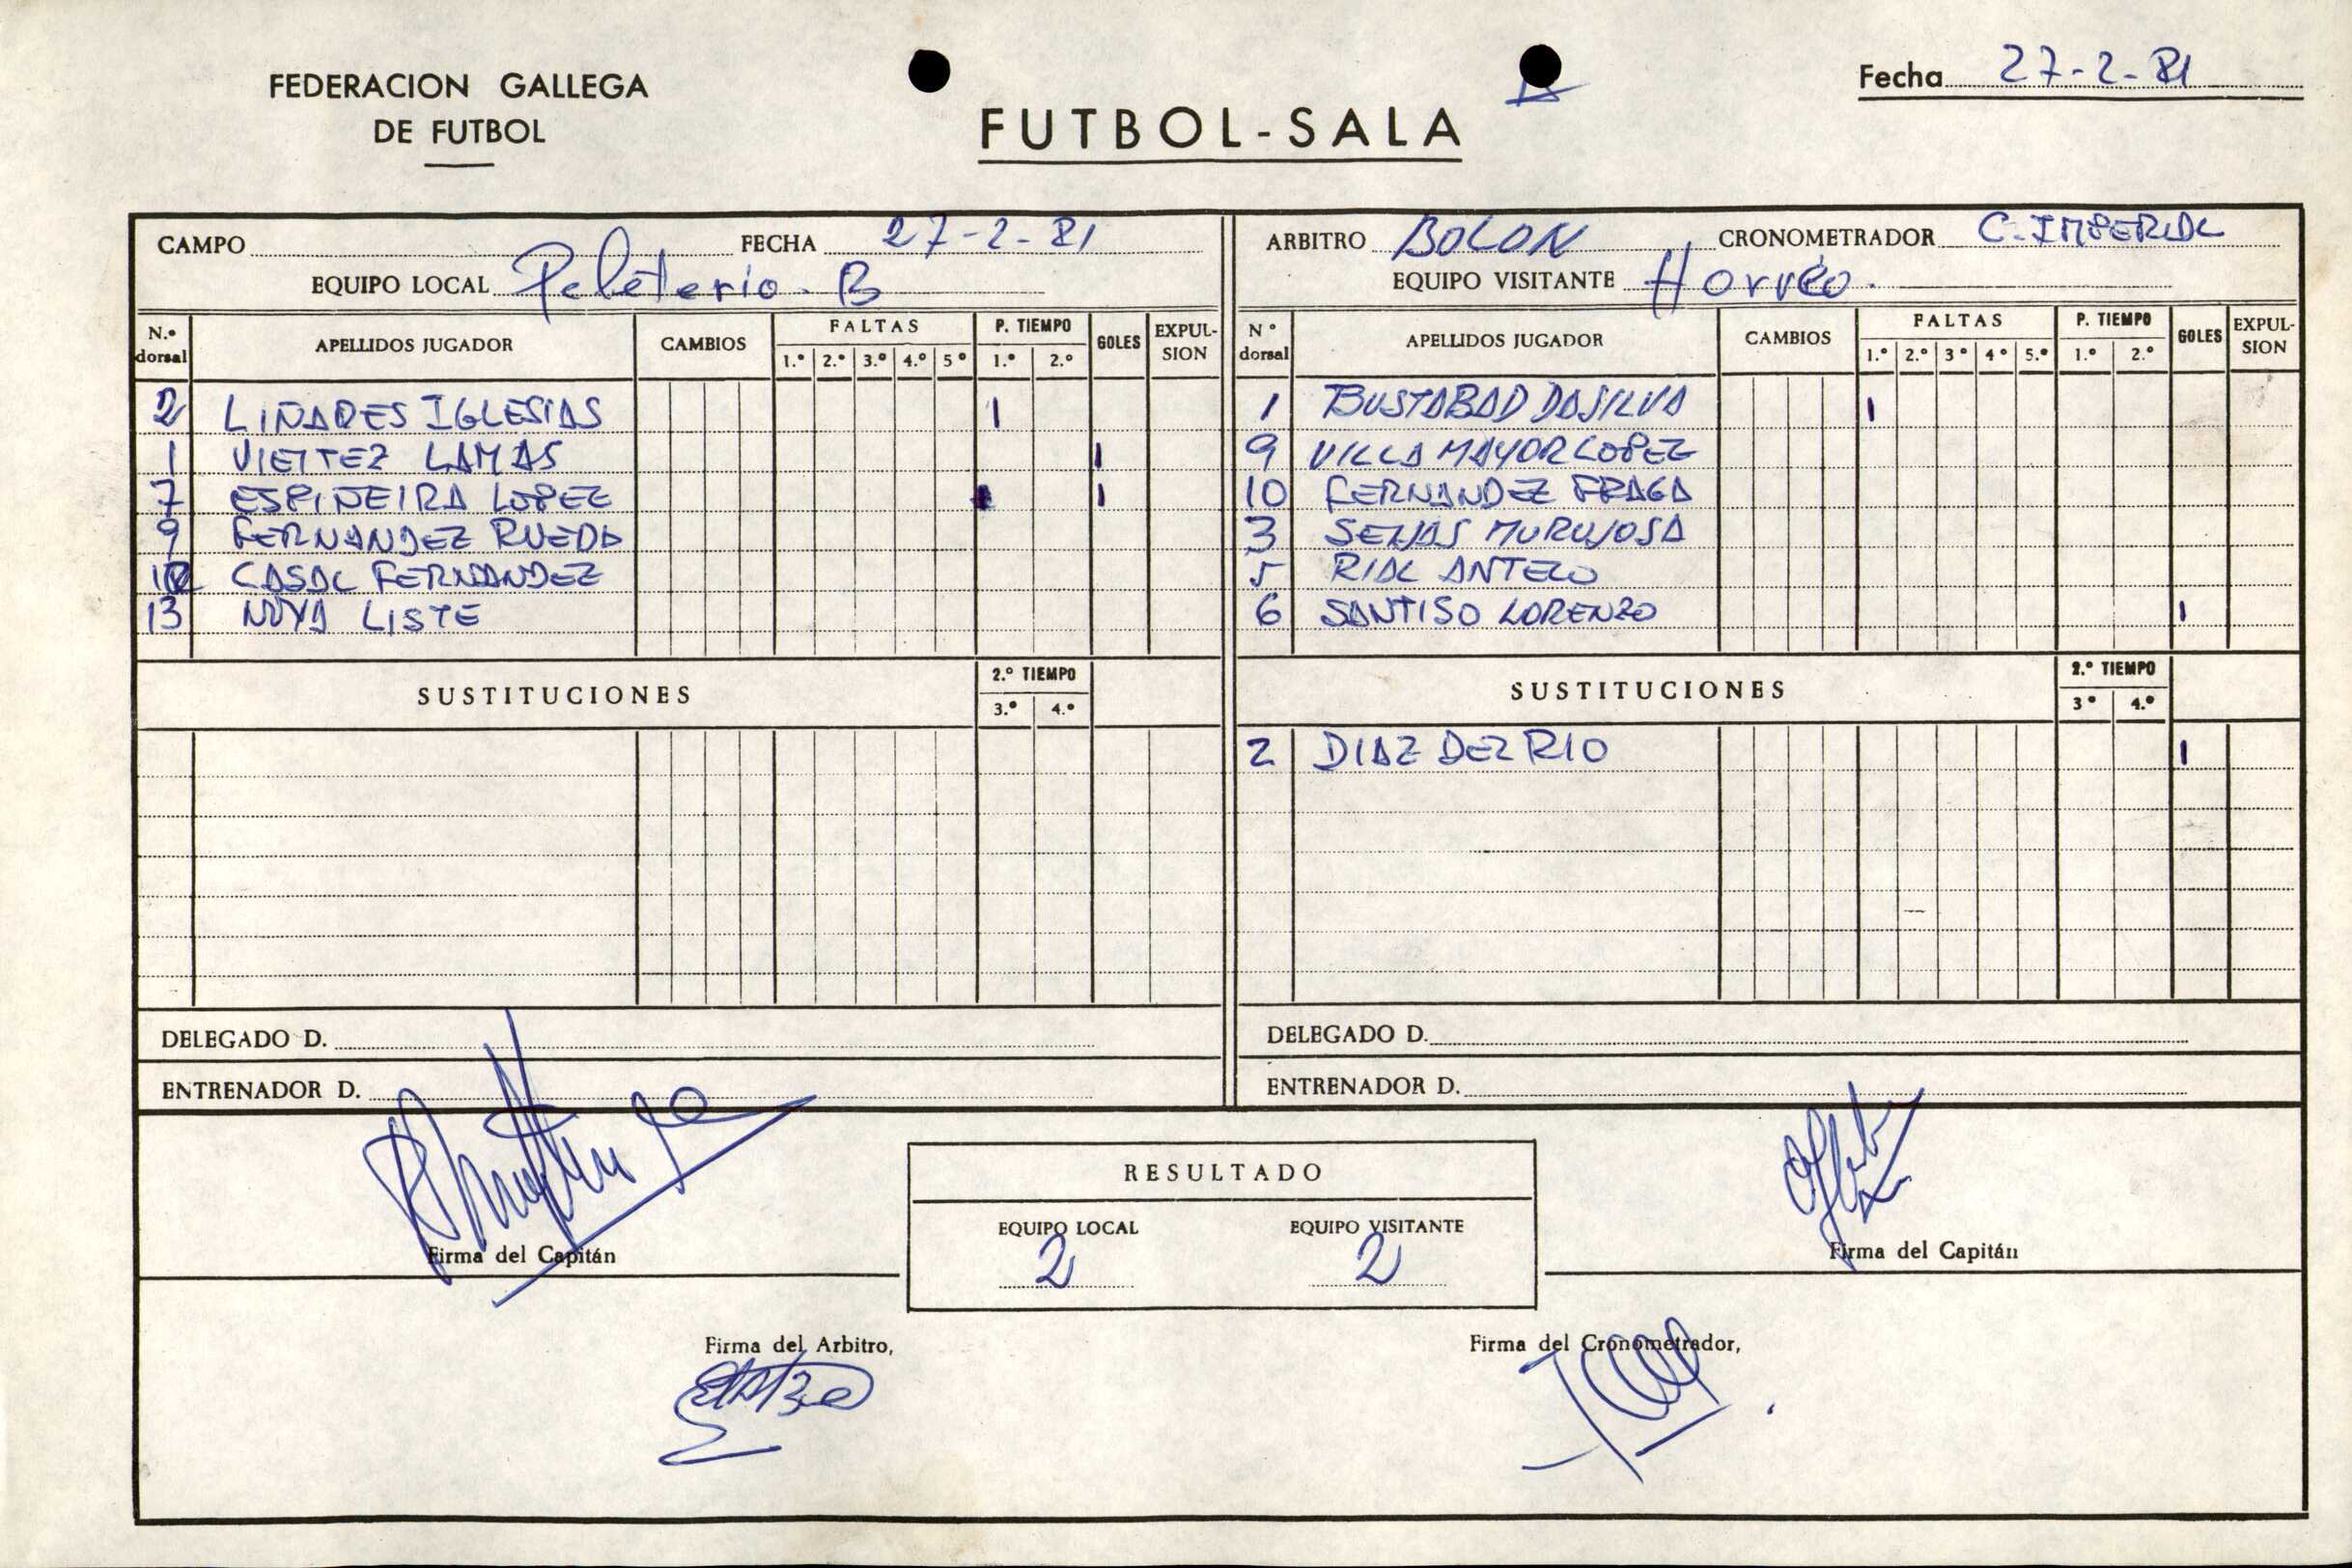 FEDERACION GALLEGA
DE FUTBOL
FUTBOL-SALA
Fecha 27-2-81
CAMPO FECHA 27-2-81
EQUIPO LOCAL Peleterio. B
ARBITRO BOLON CRONOMETRADOR C. IMPERIAL
EQUIPO VISITANTE Horreo.
N.º dorsal APELLIDOS JUGADOR CAMBIOS FALTAS 1.º 2.º 3.º 4.º 5º P. TIEMPO 1.º 2.º GOLES EXPUL-SION
2 LIÑARES IGLESIAS 1
1 VIEITEZ LAMAS 1
7 ESPIÑEIRA LOPEZ 1
9 FERNANDEZ RUEDA
CASAL FERNANDEZ
13 NOYA LISTE
SUSTITUCIONES 2.º TIEMPO 3.º 4.º
DELEGADO D.
ENTRENADOR D.
N º dorsal APELLIDOS JUGADOR CAMBIOS FALTAS 1.º 2.º 3º 4º 5.º P. TIEMPO 1.º 2.º GOLES EXPUL-SION
1 BUSTABAD DASILVA 1
9 VILLAMAYOR LOPEZ
10 FERNANDEZ FRAGA
3 SEIJAS MURUJOSA
5 RIAL ANTELO
6 SANTISO LORENZO 1
SUSTITUCIONES 2.º TIEMPO 3º 4.º
2 DIAZ DEL RIO 1
DELEGADO D.
ENTRENADOR D.
Firma del Capitán
RESULTADO
EQUIPO LOCAL EQUIPO VISITANTE
2 2
Firma del Capitán
Firma del Arbitro,
Firma del Cronometrador,